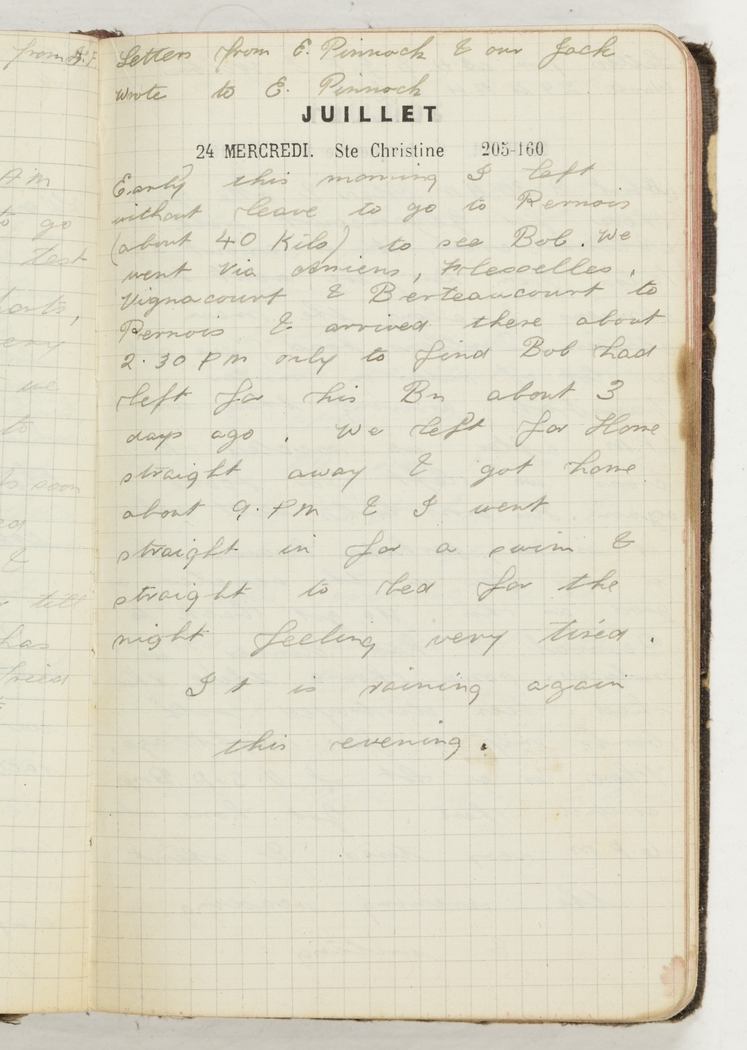 from
Letters from E. Pinnock & our Jack
wrote to E. Pinnock
JUILLET
24 MERCREDI. Ste Christine 205-160
Early this morning I left
without leave to go to Pernois
(about 40 Kilo) to see Bob. We
went via Amiens, Flesselles,
Vignacourt & Berteaucourt to
Pernois & arrived there about
2.30 PM only to find Bob had
left for his Bn about 3
days ago. We left for Home
straight away & got home
about 9. PM & I went
straight in for a swim &
straight to bed for the
night feeling very tired.
It is raining again
this evening.
AM
to go
test
we
to
soon
&
till
has
tried